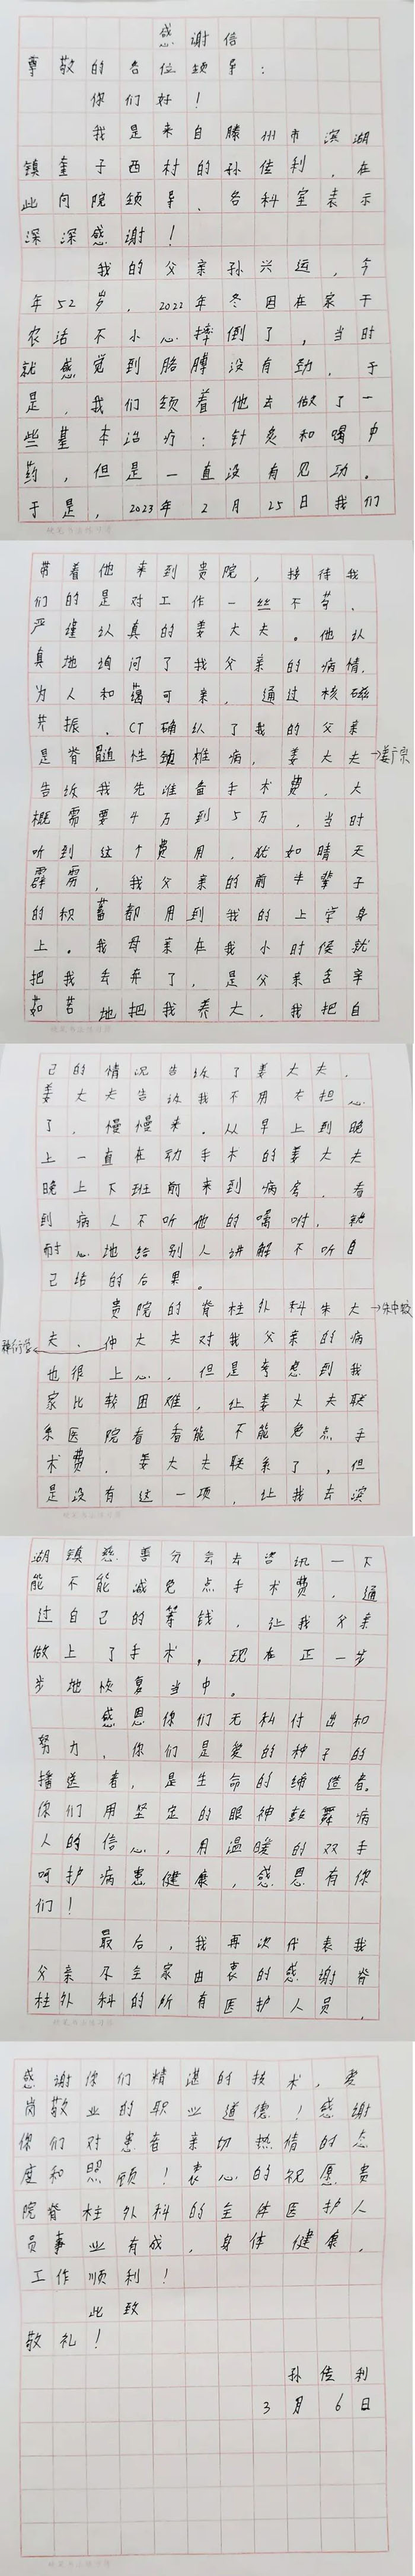 感谢信
尊敬的各位领导：
你们好！
我是来自滕州市滨湖
镇奎子西村的孙传利，在
此向院领导、各科室表示
深深感谢！
我的父亲孙兴运，今
年52岁，2022年冬因在家干
农活不小心摔倒了，当时
就感觉到胳膊没有劲，于
是，我们领着他去做了一
些基本治疗：针灸和喝中
药，但是一直没有见功。
于是，2023年2月25日我们
带着他来到贵院，接待我
们的是对工作一丝不苟、
严谨认真的姜大夫。他认
真地询问了我父亲的病情，
为人和蔼可亲，通过核磁
共振、CT确认了我的父亲
是脊髓性颈椎病，姜大夫→姜广宗
告诉我先准备手术费，大
概需要4万到5万，当时
听到这个费用，犹如晴天
霹雳，我父亲的前半辈子
的积蓄都用到我的上学身
上。我母亲在我小时候就
把我丢弃了，是父亲含辛
茹苦地把我养大，我把自
己的情况告诉了姜大夫，
姜大夫告诉我不用太担心
了，慢慢来。从早上到晚
上一直在动手术的姜大夫
晚上下班前来到病房，看
到病人不听他的嘱咐，就
耐心地给别人讲解不听自
己话的后果。
贵院的脊柱外科朱大→朱中蛟
夫、仲大夫对我父亲的病
也很上心，但是考虑到我
家比较困难，让姜大夫联
系医院看看能不能免点手
术费，姜大夫联系了，但
是没有这一项，让我去滨
湖镇慈善分会去咨讯一下
能不能减免点手术费，通
过自己的筹钱，让我父亲
做上了手术。现在正一步
步地恢复当中。
感恩你们无私付出和
努力，你们是爱的种子的
播送者，是生命的缔造者。
你们用坚定的眼神鼓舞病
人的信心，用温暖的双手
呵护病患健康，感恩有你
们！
最后，我再次代表我
父亲及全家由衷的感谢脊
柱外科的所有医护人员，
感谢你们精湛的技术，爱
岗敬业的职业道德！感谢
你们对患者亲切热情的态
度和照顾！衷心的祝愿贵
院脊柱外科的全体医护人
员事业有成，身体健康，
工作顺利！
此致
敬礼！
孙传利
3月6日